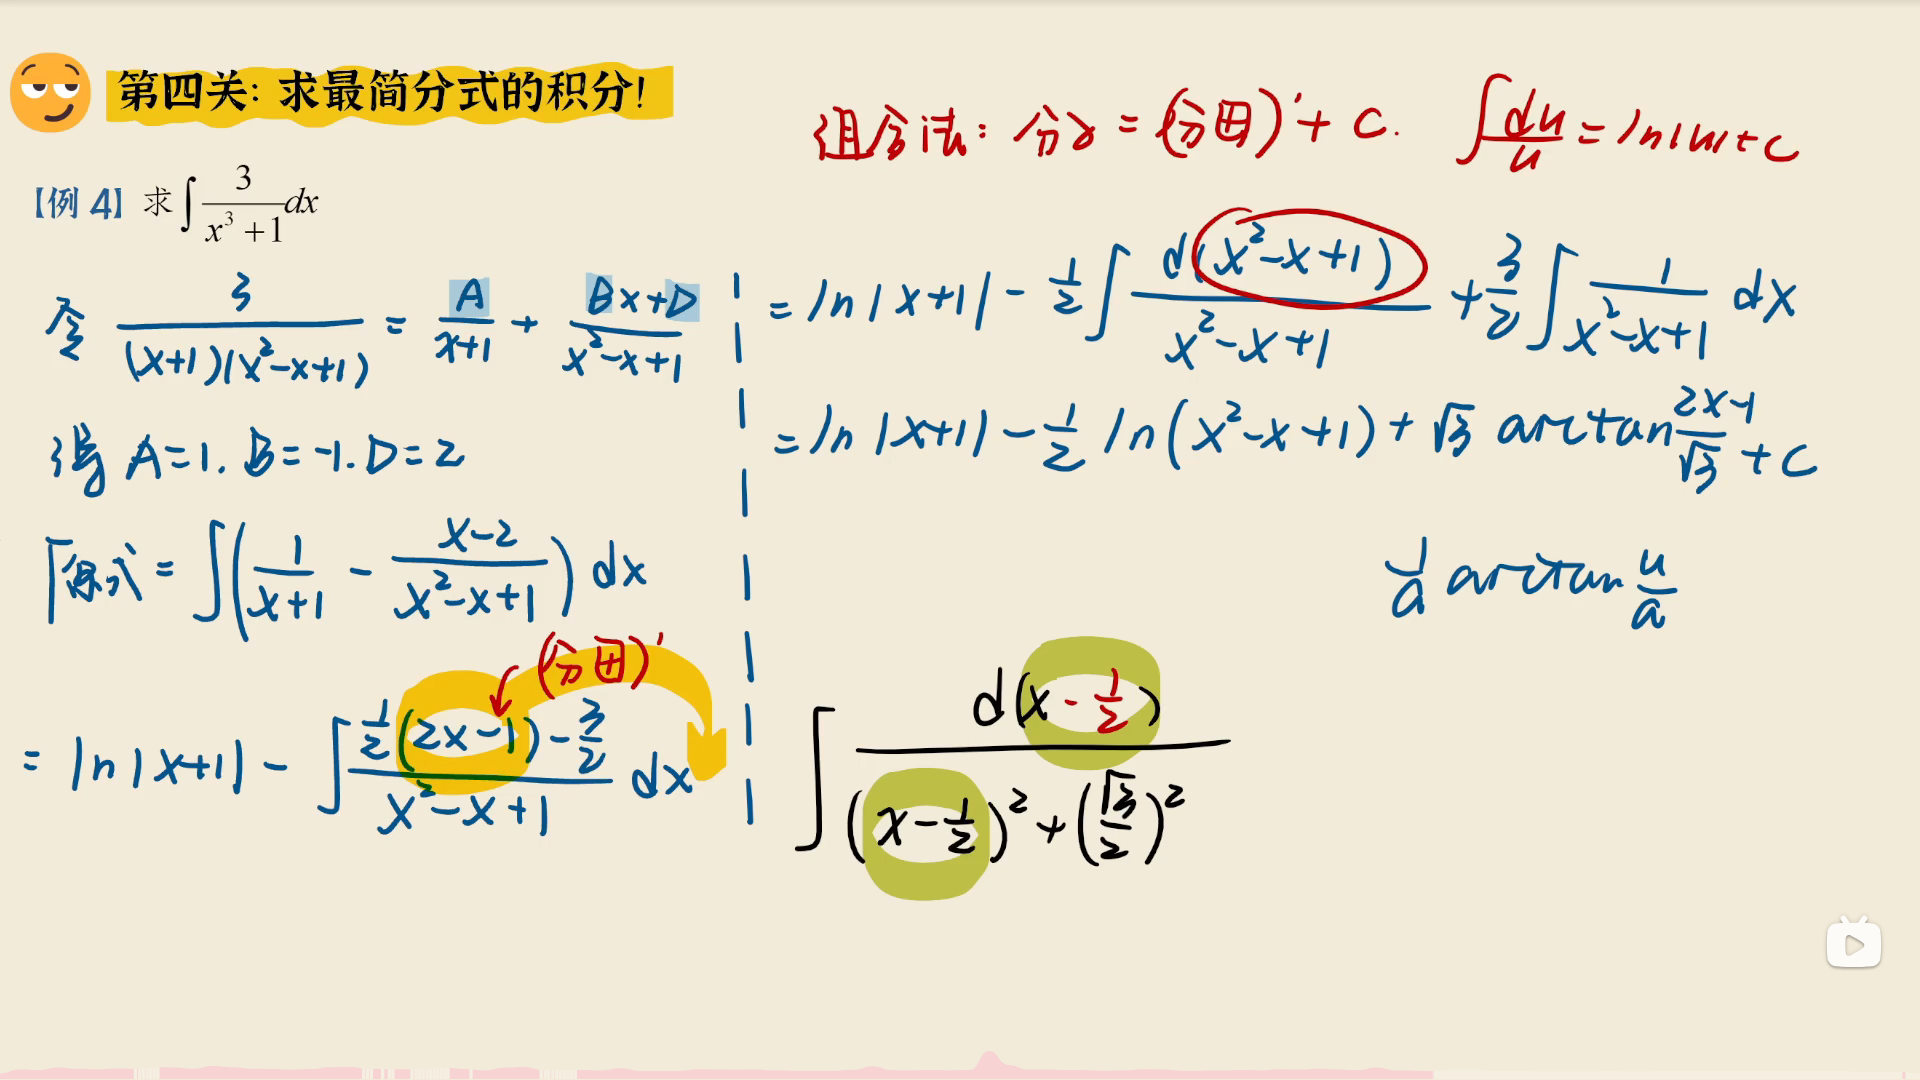 第四关: 求最简分式的积分!
组合法: 分子 = (分母)' + C. ∫ du/u = ln|u| + C
【例 4】求 ∫ 3/(x³+1) dx
令 3/((x+1)(x²-x+1)) = A/(x+1) + (Bx+D)/(x²-x+1)
得 A=1. B=-1. D=2
原式 = ∫(1/(x+1) - (x-2)/(x²-x+1)) dx
(分母)'
= ln|x+1| - ∫ (½(2x-1) - 3/2)/(x²-x+1) dx
= ln|x+1| - ½ ∫ d(x²-x+1)/(x²-x+1) + 3/2 ∫ 1/(x²-x+1) dx
= ln|x+1| - ½ ln(x²-x+1) + √3 arctan (2x-1)/√3 + C
1/a arctan u/a
∫ d(x-½)/((x-½)² + (√3/2)²)